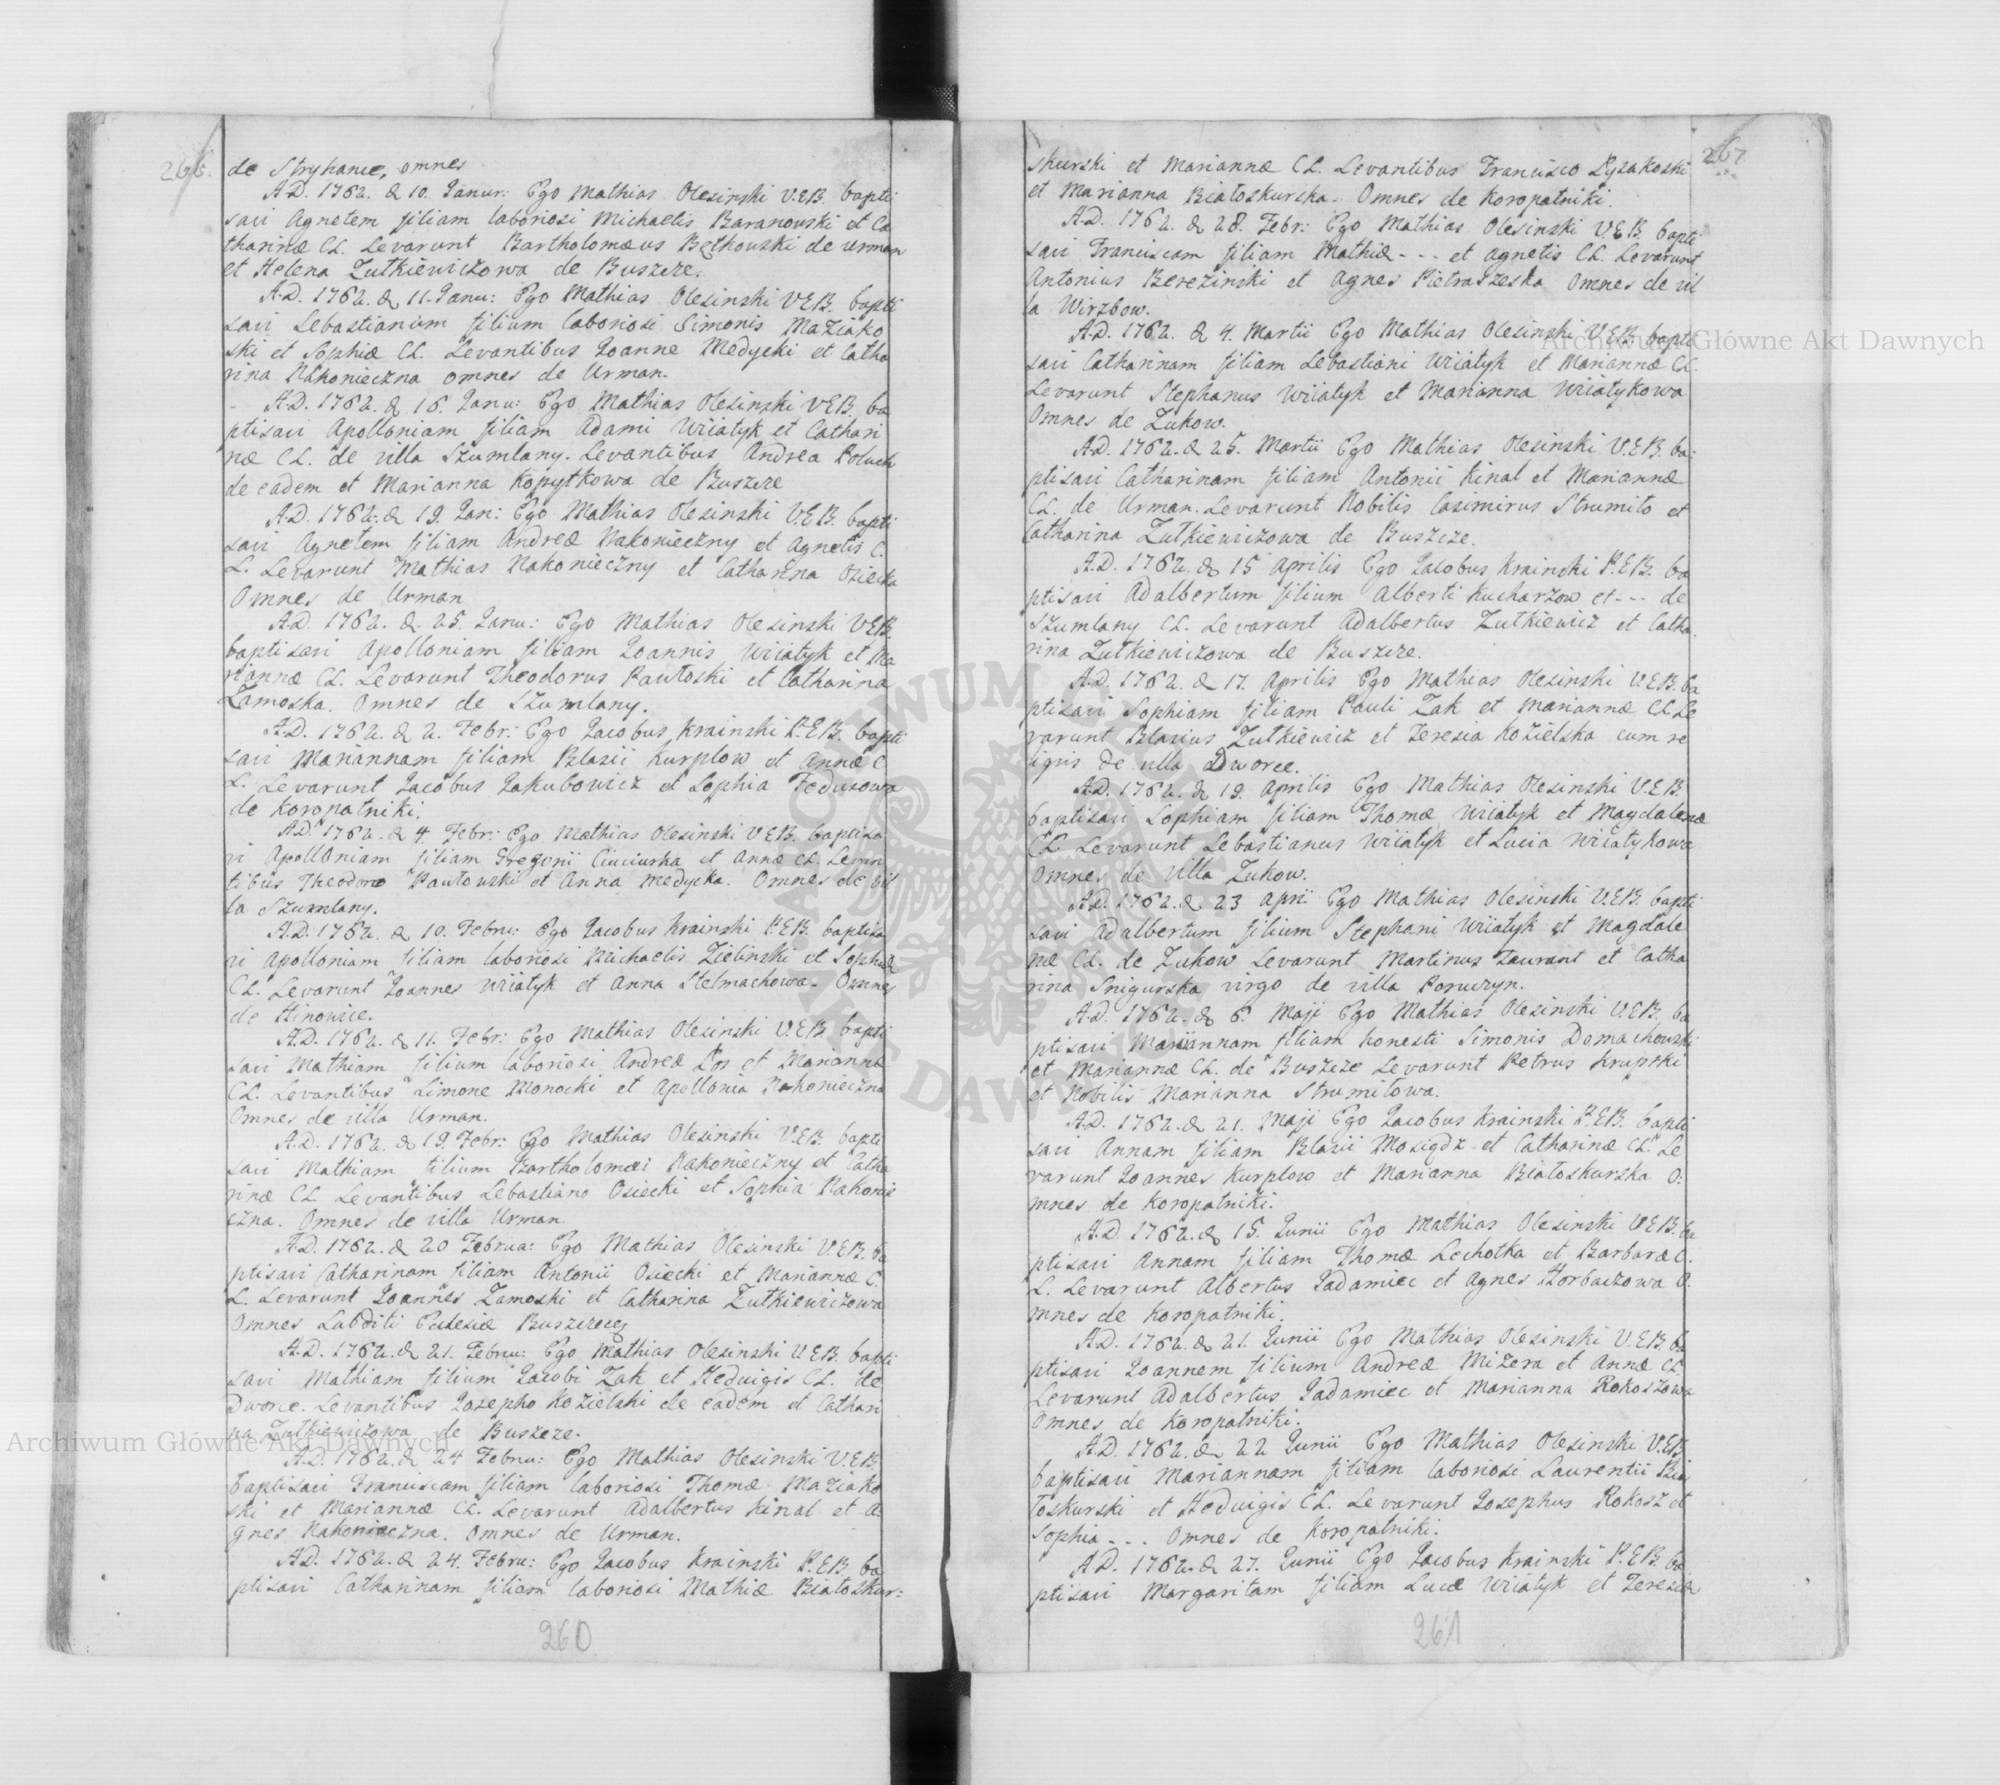 266.
de Stryhance, omnes
A.D. 1762. d. 10. Januar: Ego Mathias Olesinski V.E.B. bapti
savi Agnetem filiam laboriosi Michaelis Baranowski et Ca
tharinæ CL. Levarunt Bartholomæus Bętkowski de Urman
et Helena Zutkiewiczowa de Buszcze.
A.D. 1762. d. 11. Janu: Ego Mathias Olesinski V.E.B. bapti
savi Sebastianum filium laboriosi Simonis Maziako
ski et Sophiæ CL. Levantibus Joanne Medycki et Catha
rina Nakonieczna omnes de Urman.
A.D. 1762. d. 16. Janu: Ego Mathias Olesinski V.E.B. ba
ptisavi Apolloniam filiam Adami Wiiatyk et Cathari
næ CL. de villa Szumlany. Levantibus Andrea Poluch
de eadem et Marianna Kopytkowa de Buszcze
A.D. 1762. d. 19. Jan: Ego Mathias Olesinski V.E.B. bapti
savi Agnetem filiam Andreæ Nakonieczny et Agnetis C.
L. Levarunt Mathias Nakonieczny et Catharina Osiecka
Omnes de Urman
A.D. 1762. d. 25. Janu: Ego Mathias Olesinski V.E.B.
baptisavi Apolloniam filiam Joannis Wiiatyk et Ma
riannæ CL. Levarunt Theodorus Pawłoski et Catharina
Zamoska. Omnes de Szumlany.
A.D. 1762. d. 2. Febr: Ego Jacobus Krainski P.E.B. bapti
savi Mariannam filiam Blasii Kurplow et Annæ C.
L. Levarunt Jacobus Jakubowicz et Sophia Fedusowa
de Koropatniki.
A.D. 1762. d. 4. Febr: Ego Mathias Olesinski V.E.B. baptisa
vi Apolloniam filiam Gregorii Ciuciurka et Annæ CL. Levan
tibus Theodoro Pawłowski et Anna Medycka. Omnes de vil
la Szumlany.
A.D. 1762. d. 10. Febru: Ego Jacobus Krainski P.E.B. baptisa
vi Apolloniam filiam laboriosi Michaelis Zielinski et Sophiæ
CL. Levarunt Joannes Wiiatyk et Anna Stelmachowa. Omnes
de Hinowice.
A.D. 1762. d. 11. Febr: Ego Mathias Olesinski V.E.B. bapti
savi Mathiam filium laboriosi Andreæ Łos et Mariannæ
CL. Levantibus Simone Monocki et Apollonia Nakonieczna
Omnes de villa Urman.
A.D. 1762. d. 19. Febr: Ego Mathias Olesinski V.E.B. bapti
savi Mathiam filium Bartholomæi Nakonieczny et Catha
rinæ CL Levantibus Sebastiano Osiecki et Sophia Nakonie
czna. Omnes de villa Urman.
A.D. 1762. d. 20 Februa: Ego Mathias Olesinski V.E.B. ba
ptisavi Catharinam filiam Antonii Osiecki et Mariannæ C.
L. Levarunt Joannes Zamoski et Catharina Zutkiewiczowa
Omnes Subditi Ecclesiæ Buszczecen
A.D. 1762. d. 21. Febru: Ego Mathias Olesinski V.E.B. bapti
savi Mathiam filium Jacobi Zak et Hedvigis CL. de
Dworce. Levantibus Josepho Kozielski de eadem et Cathari
na Zutkiewiczowa de Buszcze.
A.D. 1762. d. 24 Febru: Ego Mathias Olesinski V.E.B.
baptisavi Franciscam filiam laboriosi Thomæ Maziako
ski et Mariannæ CL. Levarunt Adalbertus Kinal et A
gnes Nakonieczna. Omnes de Urman.
A.D. 1762. d. 24. Febru: Ego Jacobus Krainski P.E.B. ba
ptisavi Catharinam filiam laboriosi Mathiæ Białoskur=
260
267
skurski et Mariannæ CL. Levantibus Francisco Łysakoski
et Marianna Białoskurska. Omnes de Koropatniki.
A.D. 1762. d. 28. Febr: Ego Mathias Olesinski V.E.B. bapti
savi Franciscam filiam Mathiæ - - - et Agnetis CL. Levarunt
Antonius Berezinski et Agnes Pietraszeska Omnes de vil
la Wirzbow.
A.D. 1762. d. 4. Martii Ego Mathias Olesinski V.E.B. bapti
savi Catharinam filiam Sebastiani Wiiatyk et Mariannæ CL.
Levarunt Stephanus Wiiatyk et Marianna Wiiatykowa
Omnes de Zukow.
A.D. 1762. d. 25. Martii Ego Mathias Olesinski V.E.B. ba:
ptisavi Catharinam filiam Antonii Kinal et Mariannæ
CL. de Urman. Levarunt Nobilis Casimirus Strumiło et
Catharina Zutkiewiczowa de Buszcze.
A.D. 1762. d. 15 Aprilis Ego Jacobus Krainski P.E.B. ba
ptisavi Adalbertum filium Alberti Kucharzow et - - - de
Szumlany CL. Levarunt Adalbertus Zutkiewicz et Catha
rina Zutkiewiczowa de Buszcze.
A.D. 1762. d. 17. Aprilis Ego Mathias Olesinski V.E.B. ba
ptisavi Sophiam filiam Pauli Zak et Mariannæ CL Le
varunt Blasius Zutkiewicz et Teresia Kozielska cum re
liquis de villa Dworce.
A.D. 1762. d. 19. Aprilis Ego Mathias Olesinski V.E.B.
baptisavi Sophiam filiam Thomæ Wiiatyk et Magdalenæ
CL Levarunt Sebastianus Wiiatyk et Lucia Wiiatykowa
Omnes de villa Zukow.
A.D. 1762. d. 23 Apri: Ego Mathias Olesinski V.E.B. bapti
savi Adalbertum filium Stephani Wiiatyk et Magdale
næ CL. de Zukow Levarunt Martinus Taurant et Catha
rina Snigurska virgo de villa Poruczyn.
A.D. 1762. d. 6. Maji Ego Mathias Olesinski V.E.B. ba
ptisavi Mariannam filiam honesti Simonis Domachowski
et Mariannæ CL. de Buszcze Levarunt Petrus Krupski
et Nobilis Marianna Strumiłowa.
A.D. 1762. d. 21. Maji Ego Jacobus Krainski P.E.B. bapti
savi Annam filiam Blasii Mosiądz et Catharinæ CL. Le
varunt Joannes Kurplow et Marianna Białoskurska O:
mnes de Koropatniki.
A.D. 1762. d. 15. Junii Ego Mathias Olesinski V.E.B. ba
ptisavi Annam filiam Thomæ Lechotka et Barbaræ C.
L. Levarunt Albertus Jadamiec et Agnes Horbaczowa O.
mnes de Koropatniki.
A.D. 1762. d. 21. Junii Ego Mathias Olesinski V.E.B. ba
ptisavi Joannem filium Andreæ Mizera et Annæ CL.
Levarunt Adalbertus Jadamiec et Marianna Rokoszowa
Omnes de Koropatniki.
A.D. 1762. d. 22 Junii Ego Mathias Olesinski V.E.B.
baptisavi Mariannam filiam laboriosi Laurentii Bia
łoskurski et Hedvigis CL. Levarunt Josephus Rokosz et
Sophia - - - Omnes de Koropatniki.
A.D. 1762. d. 27. Junii Ego Jacobus Krainski P.E.B. ba
ptisavi Margaritam filiam Lucæ Wiiatyk et Teresiæ
261
Archiwum Główne Akt Dawnych
Archiwum Główne Akt Dawnych
ARCHIWUM GŁÓWNE AKT DAWNYCH